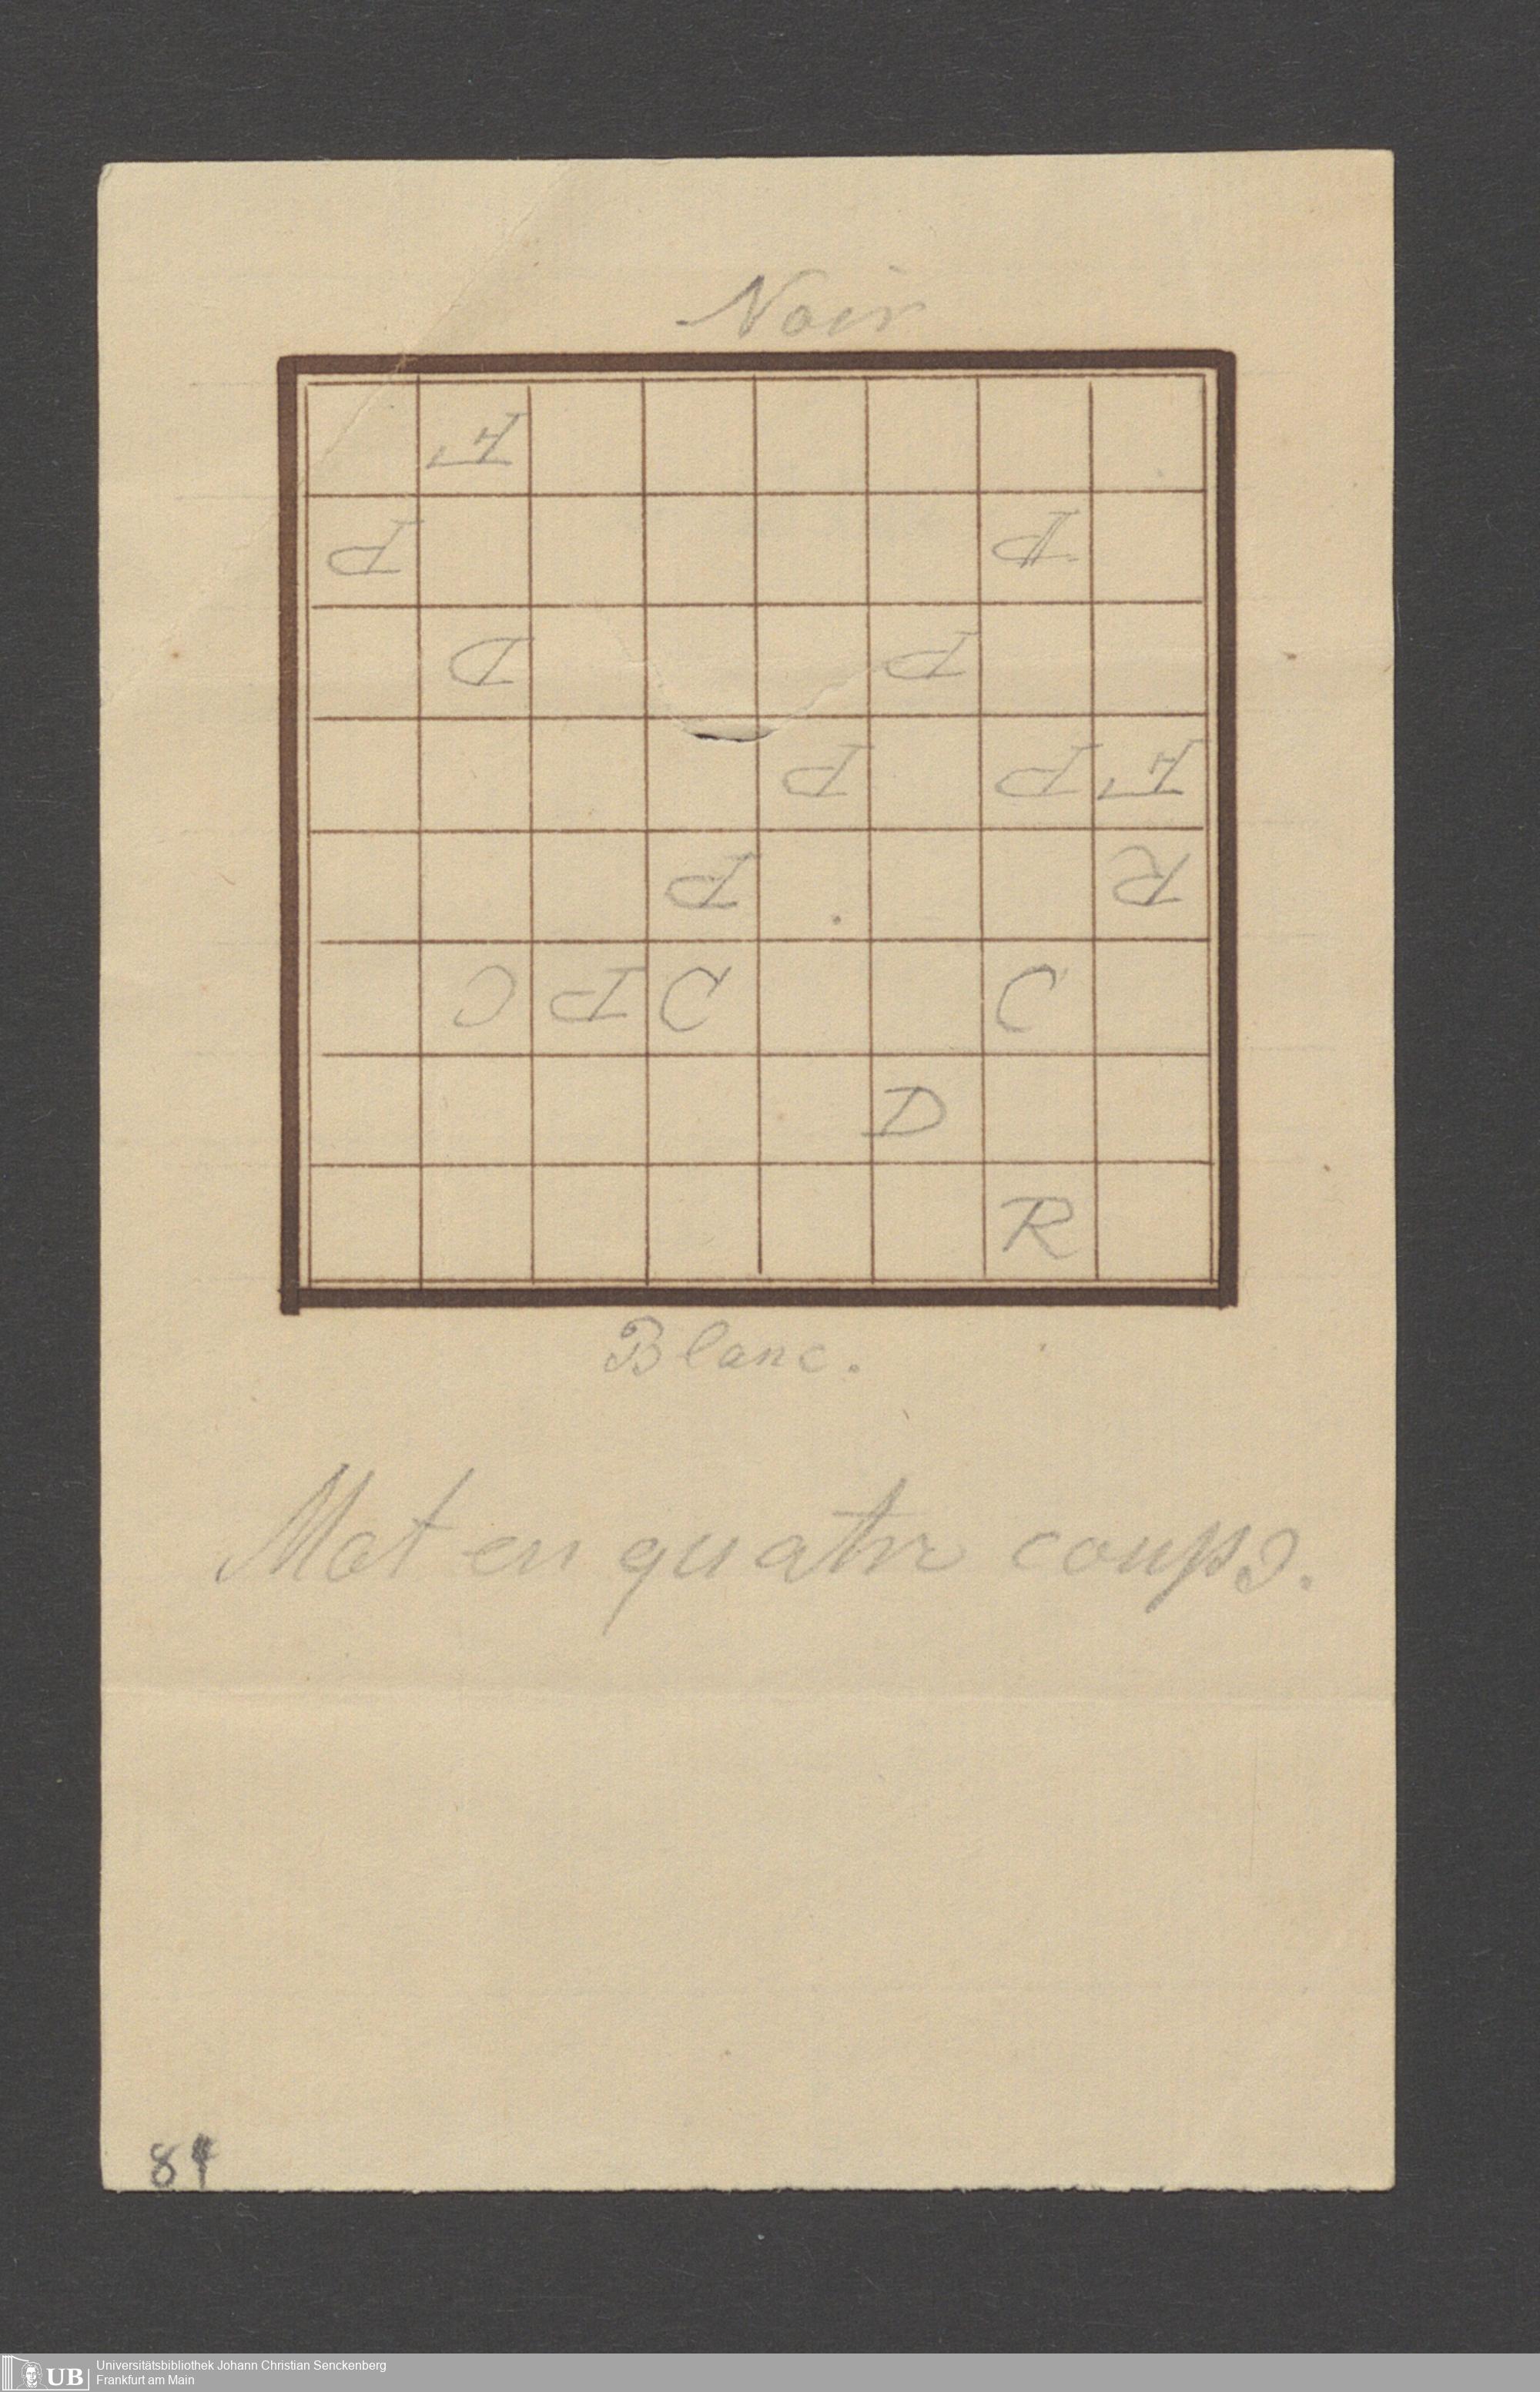 Noir
F
P P
D P
P P F
P R
C P C C
D
R
Blanc.
Mat en quatre coups.
84
UB Universitätsbibliothek Johann Christian Senckenberg
Frankfurt am Main